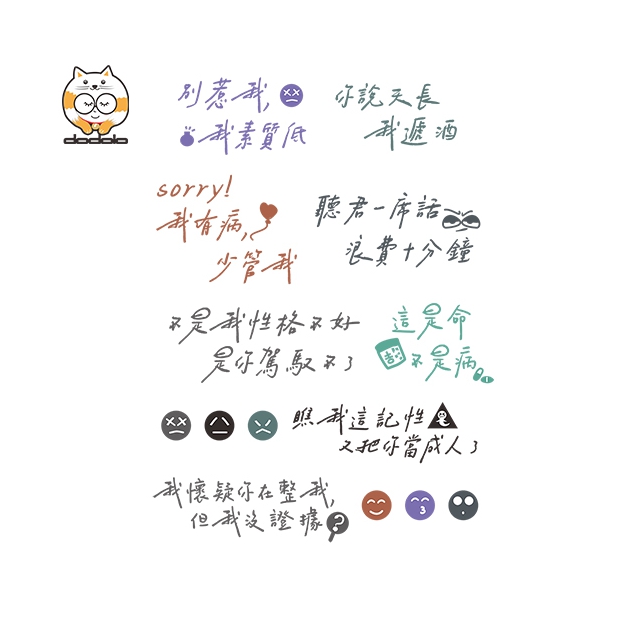 dodolo
別惹我,
我素質低
你說天長
我遞酒
sorry!
我有病,
少管我
聽君一席話
浪費十分鐘
不是我性格不好
是你駕馭不了
這是命
不是病
瞧我這記性
又把你當成人了
我懷疑你在整我,
但我沒證據